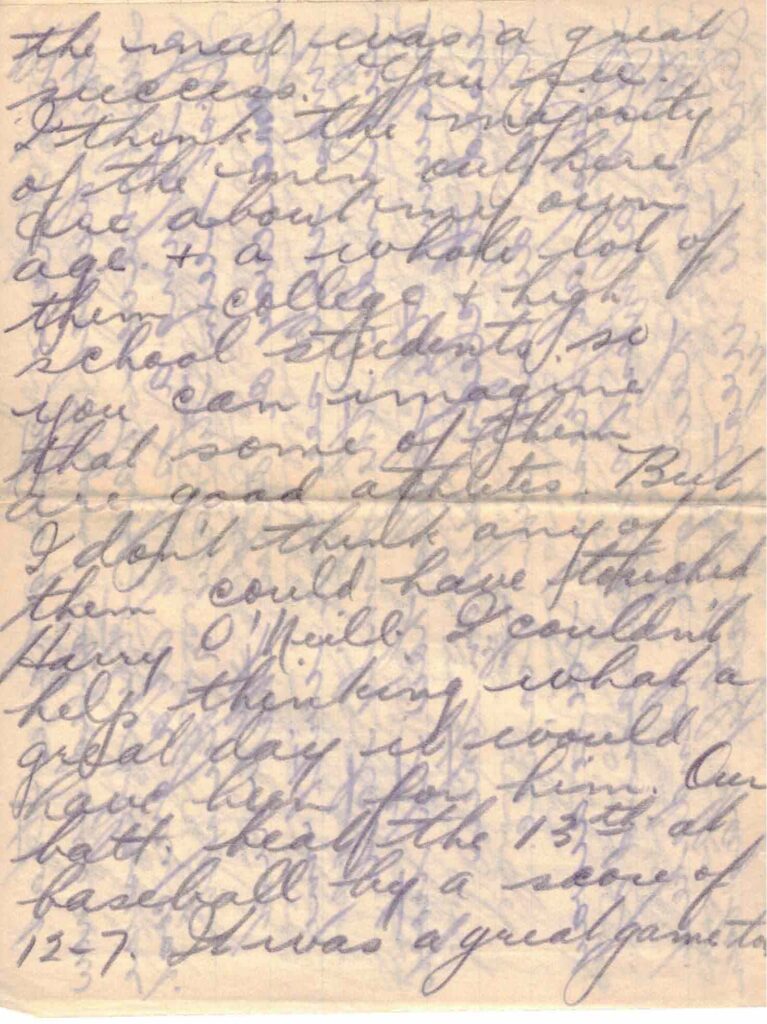 the meet was a great
success. You see.
I think the majority
of the men out here
are about my own
age. + a whole lot of
them college + high
school students, so
you can imagine
that some of them
are good athletes. But
I don't think any of
them could have touched
Harry O'Neill. I couldn't
help thinking what a
great day it would
have been for him. Our
batt. beat the 13th at
baseball by a score of
12-7. It was a great game too